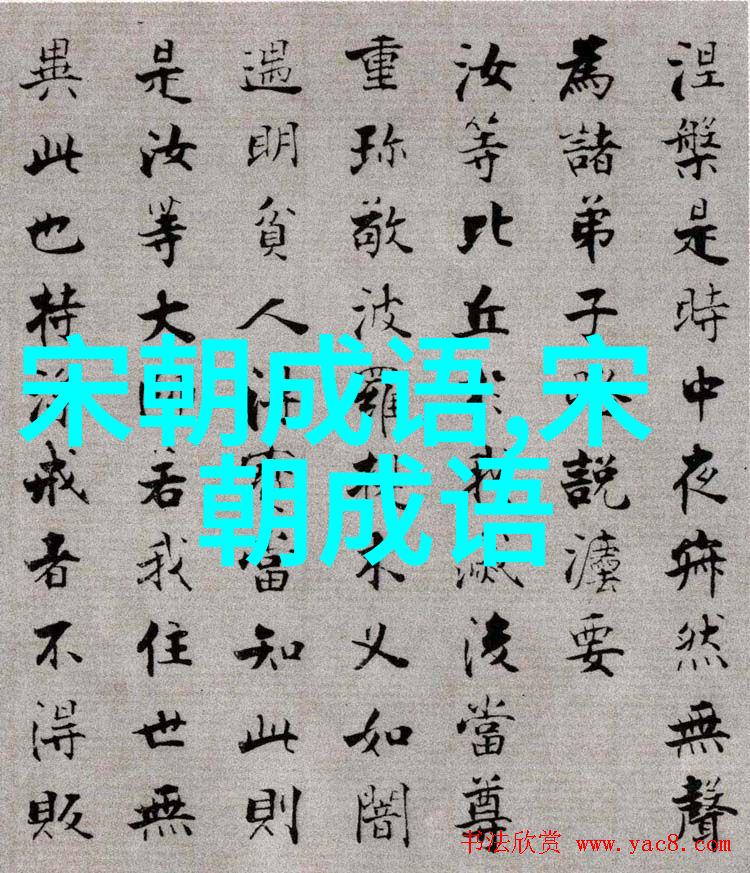 涅槃是時中夜寂然無聲
為諸弟子說法要
汝等比丘我滅後當尊
重珍敬波羅提木叉如闇
遇明貧人得當知此則
是汝等大若我住世無
異此也持淨戒者不得販
宋朝成语,宋
朝成语
书法欣赏 www.yac8.com